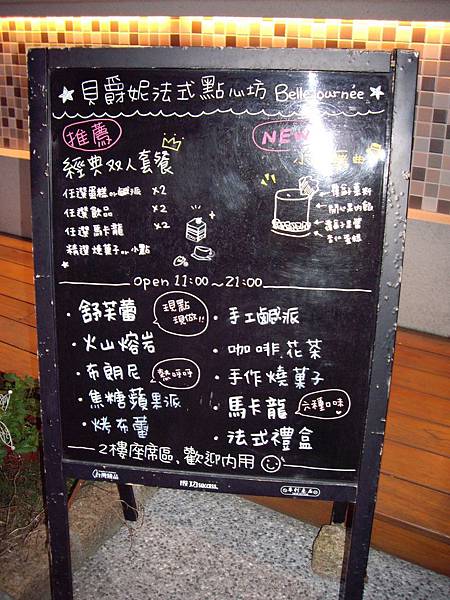 ☆貝爵妮法式點心坊 Belle Journée☆
推薦
經典双人套餐
任選蛋糕or鹹派 ×2
任選飲品 ×2
任選馬卡龍 ×2
精選燒菓子or小點
NEW
Open 11:00~21:00
・舒芙蕾
現點現做!!
・火山熔岩
・布朗尼
熱呼呼
・焦糖蘋果派
・烤布蕾
・手工鹹派
・咖啡、花茶
・手作燒菓子
・馬卡龍
六種口味
・法式禮盒
2樓座席區、歡迎內用
success